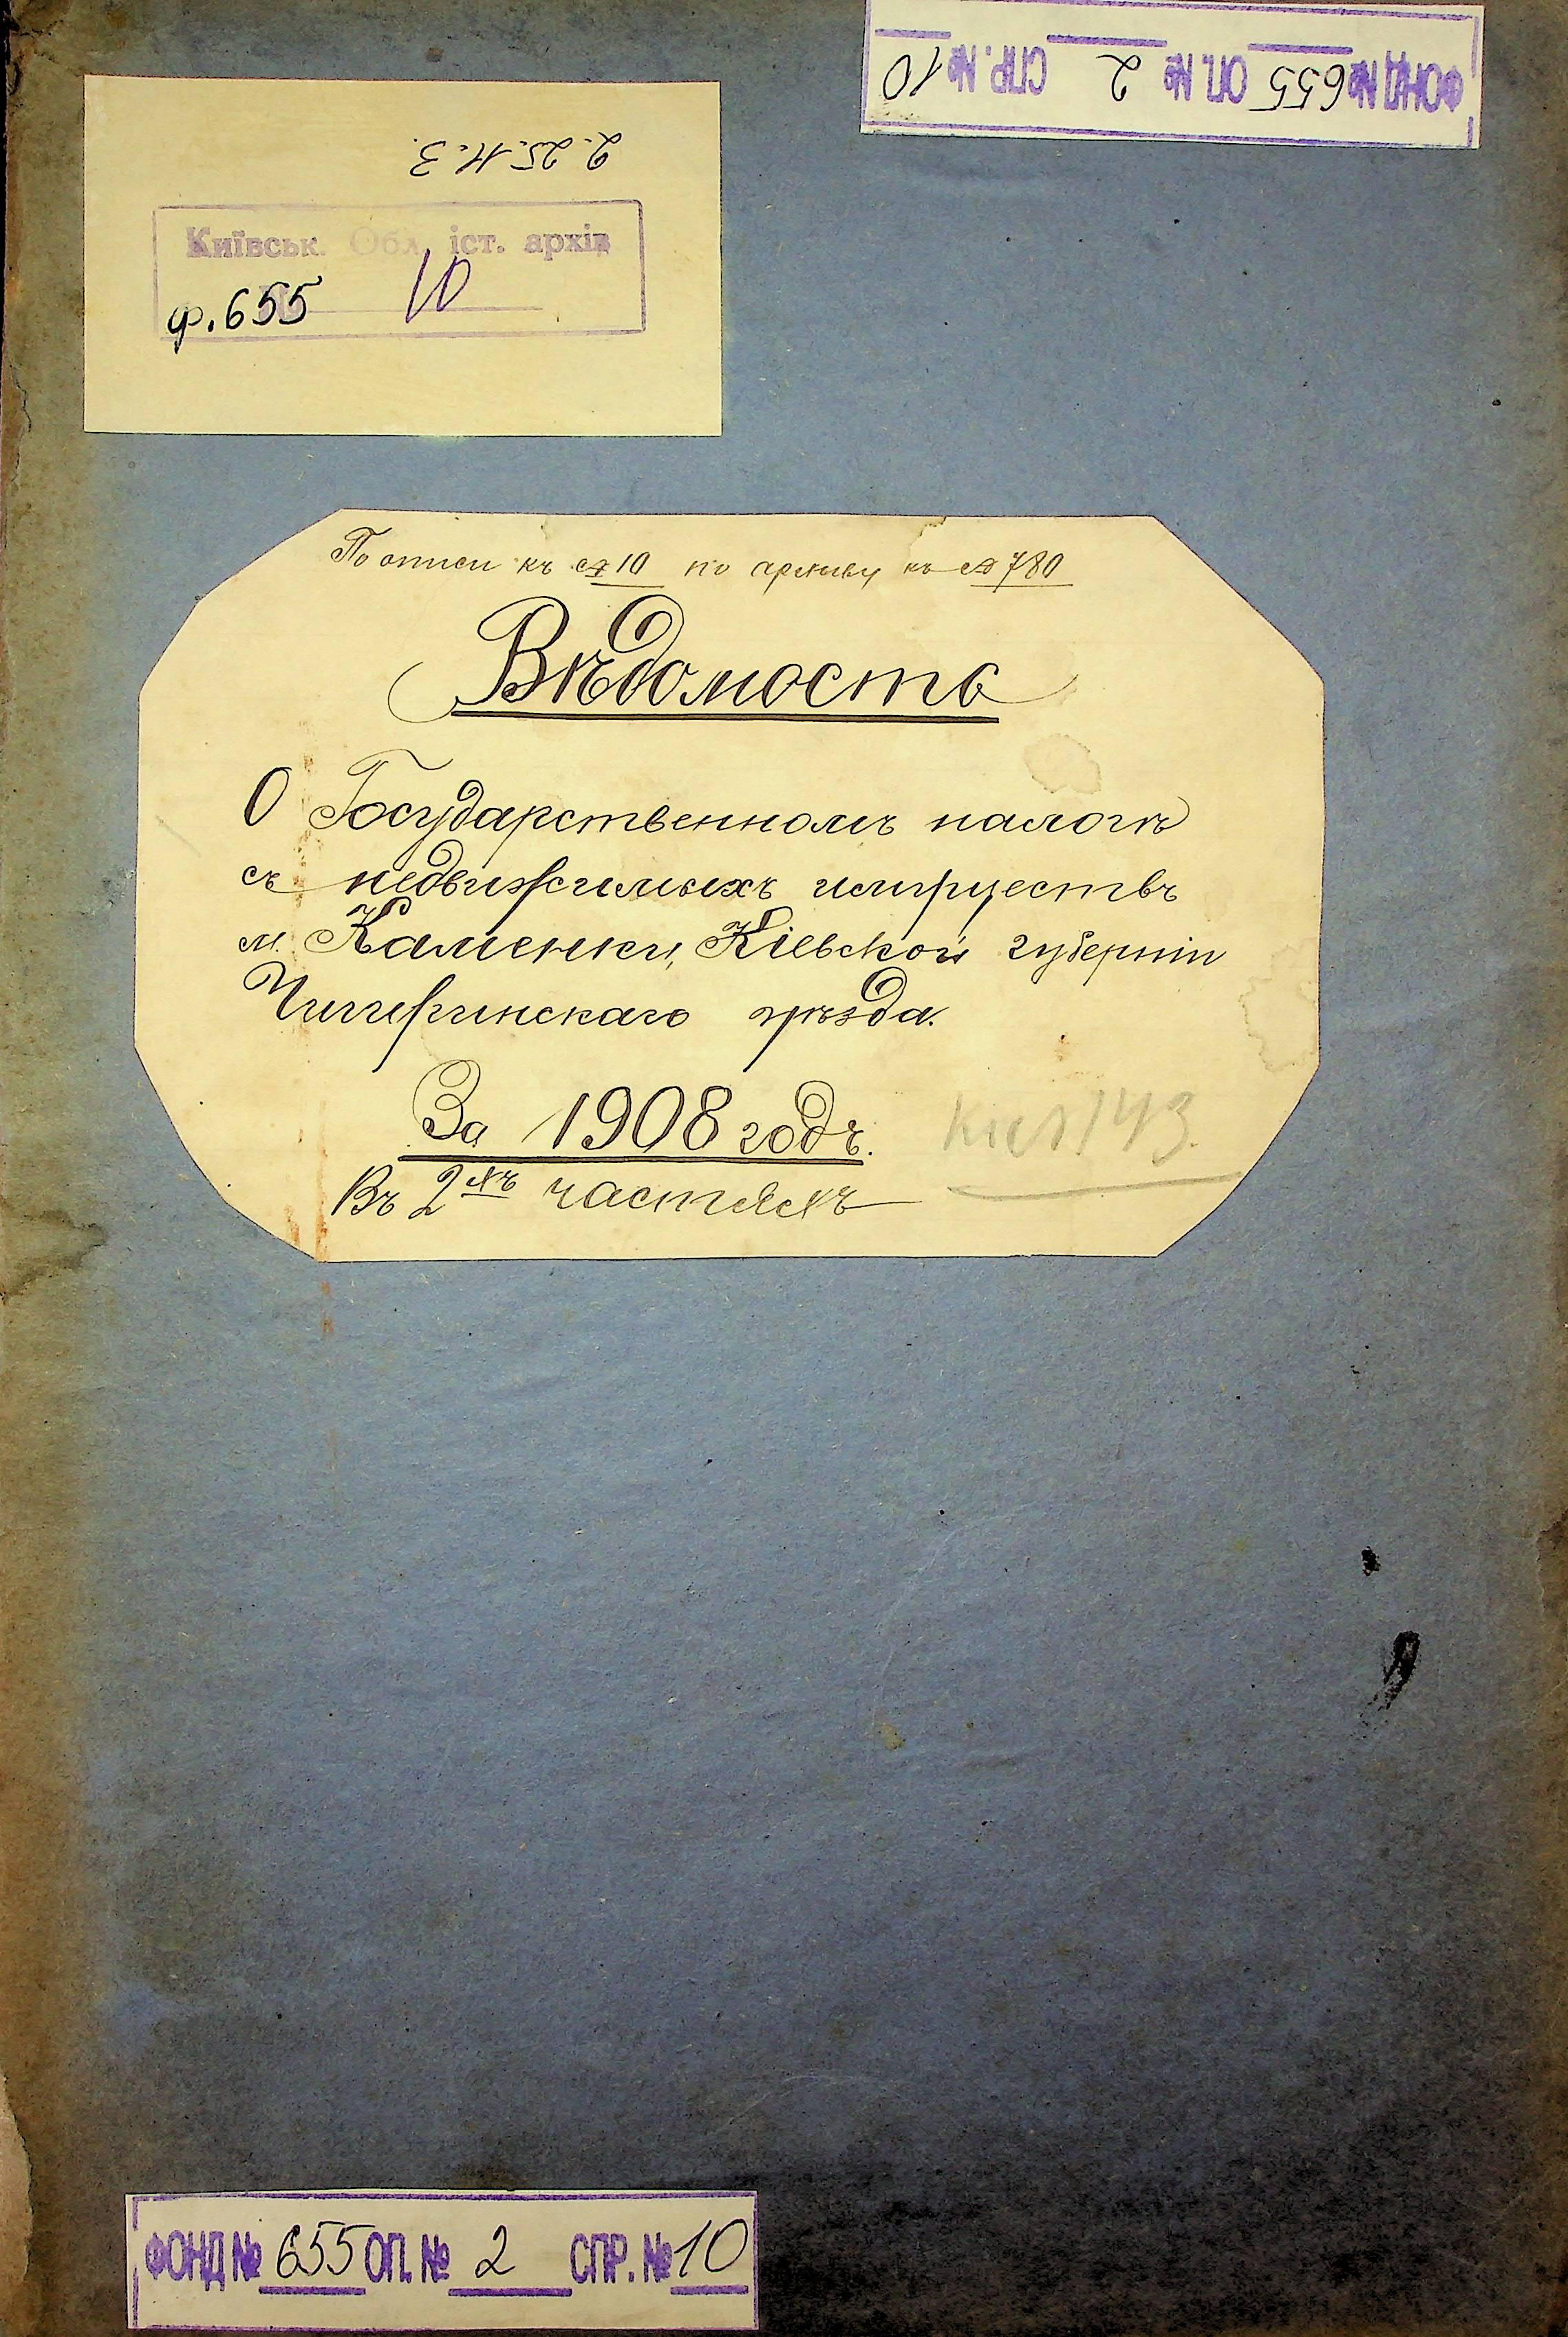 ФОНД № 655 ОП. № 2 СПР. № 10
2.25.11.3.
Київськ. Обл. іст. архів
ф. 655 10
По описи къ № 10 по архиву къ № 780
Вѣдомость
О Государственномъ налогѣ
съ недвижимыхъ имуществъ
м. Каменки, Кіевской губерніи
Чигиринскаго уѣзда.
За 1908 годъ.
Въ 2хъ частяхъ
143
ФОНД № 655 ОП. № 2 СПР. № 10